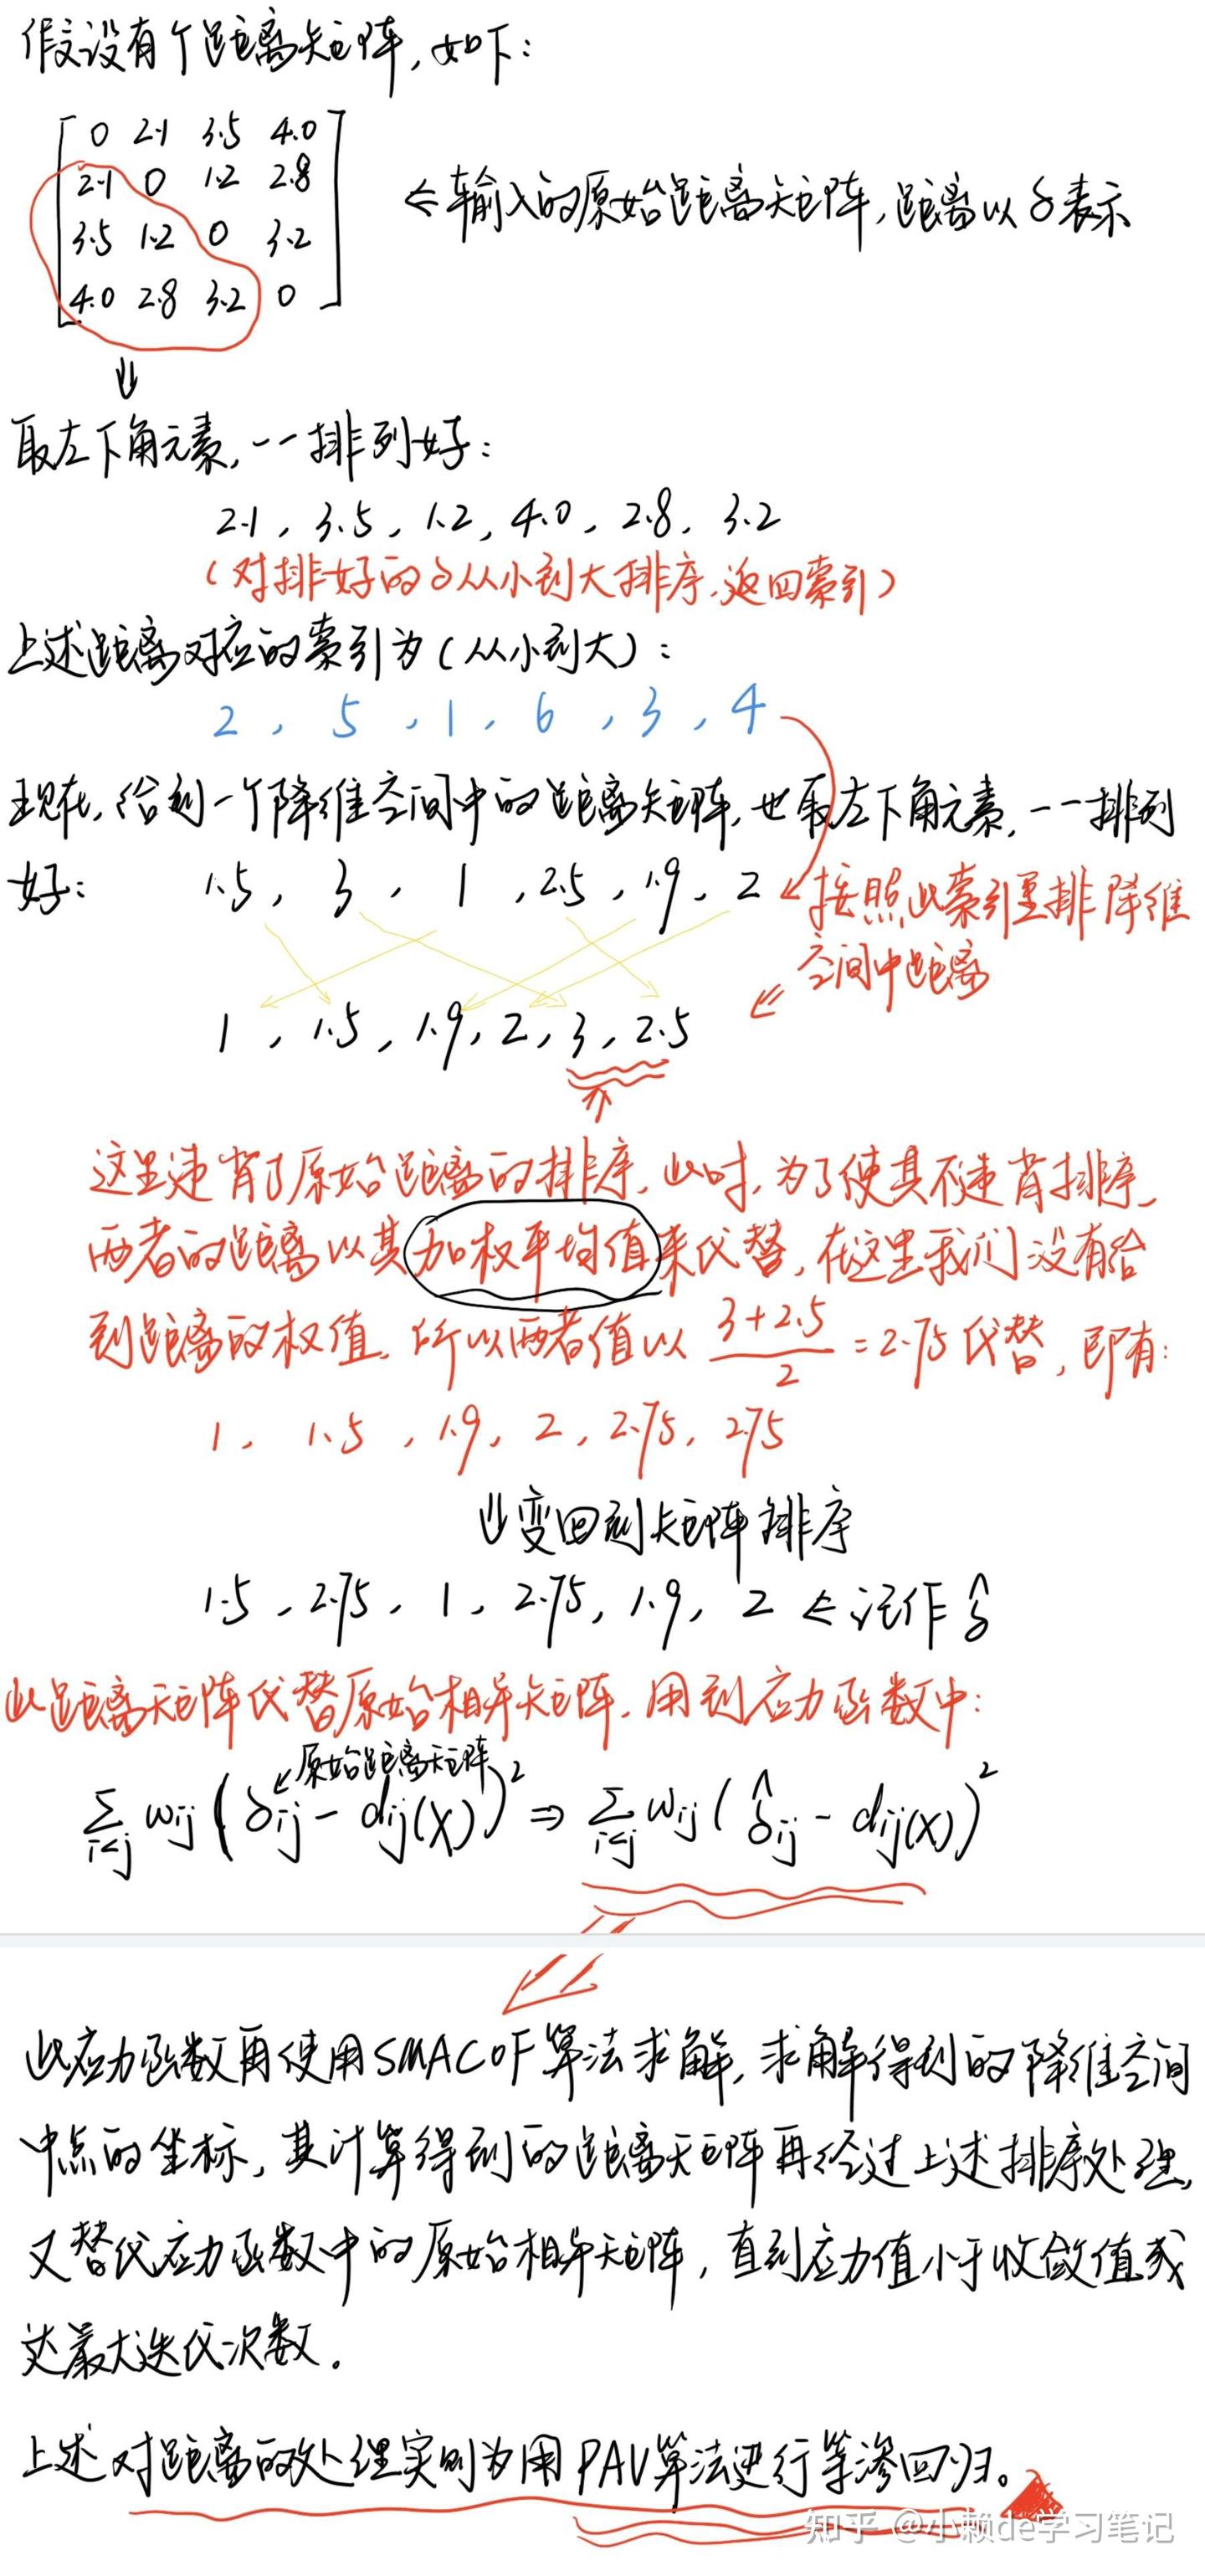 假设有个距离矩阵,如下:
0 2.1 3.5 4.0
2.1 0 1.2 2.8
3.5 1.2 0 3.2
4.0 2.8 3.2 0
⇐ 输入的原始距离矩阵,距离以δ表示
⇓
取左下角元素,一一排列好:
2.1, 3.5, 1.2, 4.0, 2.8, 3.2
(对排好的δ从小到大排序,返回索引)
上述距离对应的索引为(从小到大):
2, 5, 1, 6, 3, 4
现在,给到一个降维空间中的距离矩阵,也取左下角元素,一一排列
好: 1.5, 3, 1, 2.5, 1.9, 2
按照此索引重排降维
空间中距离
1, 1.5, 1.9, 2, 3, 2.5
这里违背了原始距离的排序,此时,为了使其不违背排序,
两者的距离以其加权平均值来代替,在这里我们没有给
到距离的权值,所以两者值以 (3+2.5)/2 = 2.75代替,即有:
1, 1.5, 1.9, 2, 2.75, 2.75
⇓变回到矩阵排序
1.5, 2.75, 1, 2.75, 1.9, 2 ⇐ 记作 δ̂
此距离矩阵代替原始相异矩阵,用到应力函数中:
原始距离矩阵
∑i<j wij (δij - dij(X))² ⇒ ∑i<j wij (δ̂ij - dij(X))²
此应力函数再使用SMACOF算法求解,求解得到的降维空间
中点的坐标,其计算得到的距离矩阵再经过上述排序处理,
又替代应力函数中的原始相异矩阵,直到应力值小于收敛值或
达最大迭代次数。
上述对距离的处理实则为用PAV算法进行等渗回归。
知乎 @小赖de学习笔记